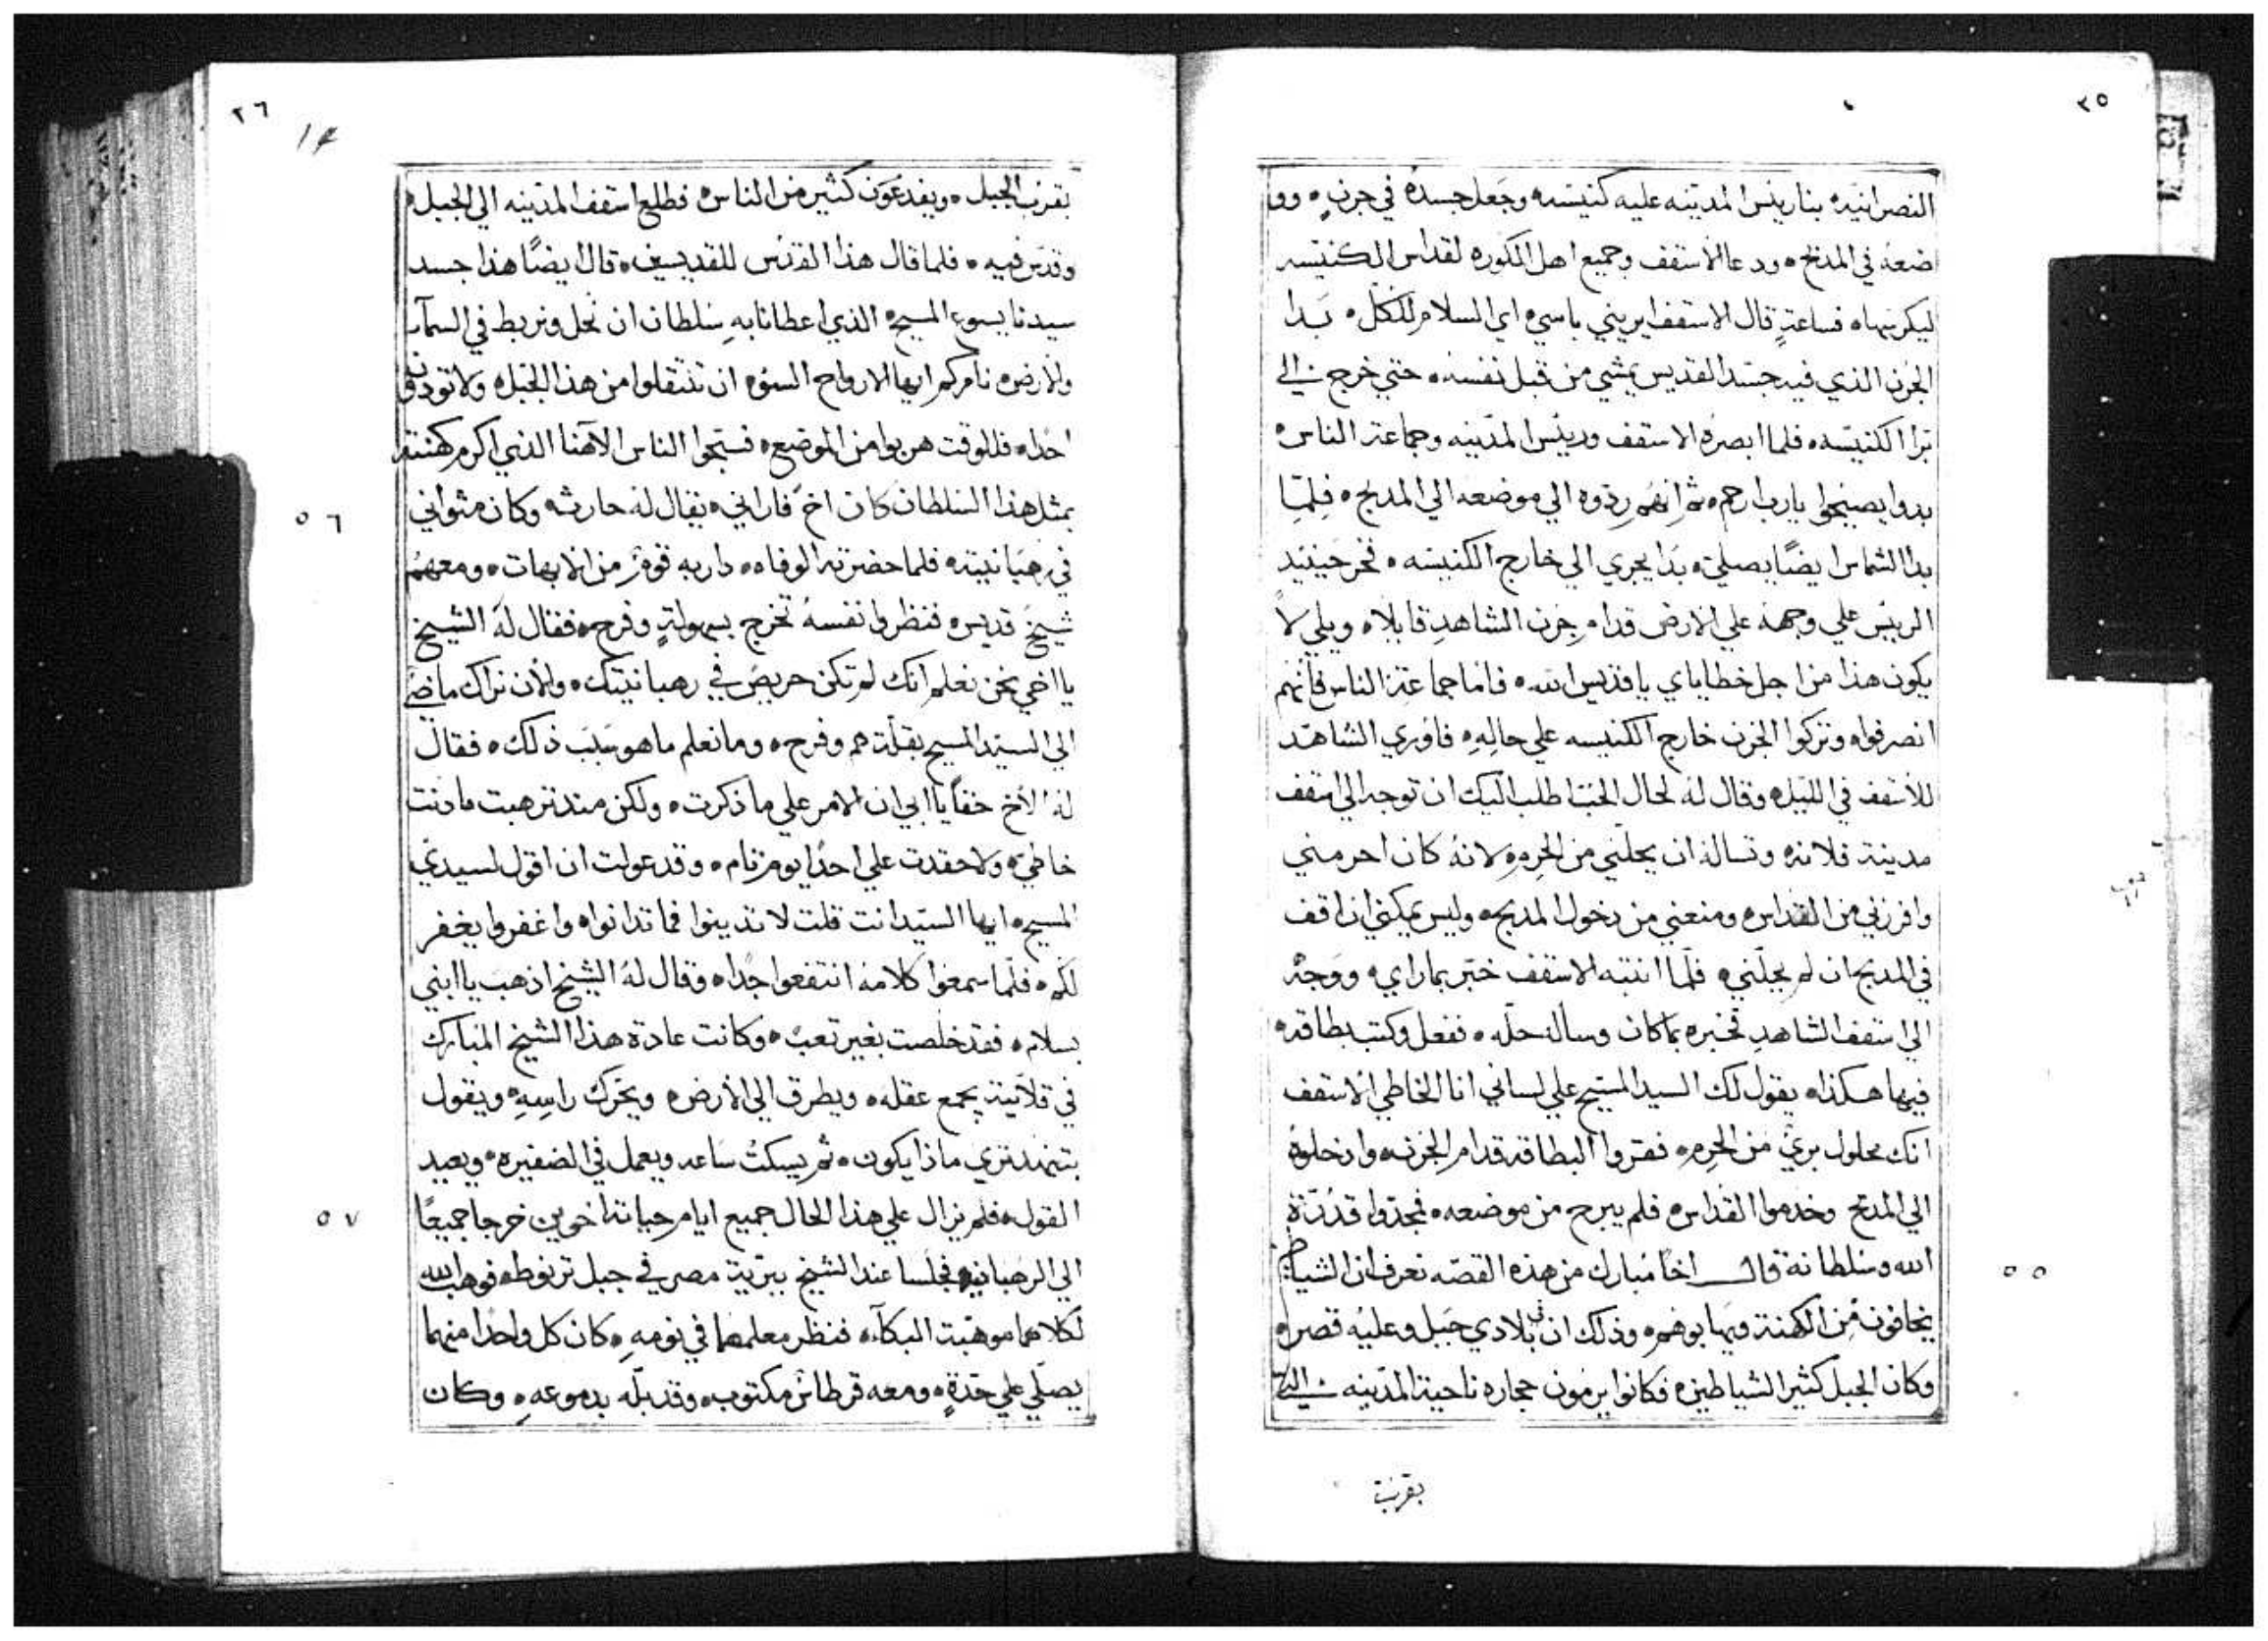 ٢٥
النصرانيه بنا ريئس المدينه عليه كنيسه وجعل جسده في جرن ٥ وو
ضعه في المدبح ٥ ودعا الاسقف وجميع اهل الكوره لقداس الكنيسه
ليكرسها ٥ فساعةٍ قال الاسقف ايريني باسي ٥ اي السلام للكل ٥ بدا
الجرن الذي فيه جسد القديس يمشي من قبل نفسه ٥ حتي خرج الي
برا الكنيسه ٥ فلما ابصره الاسقف وريئس المدينه وجماعة الناس ٥
بدوا يصيحوا يارب ارحم ٥ ثم انهم ردوه الي موضعه الي المدبح ٥ فلما
بدا الشماس ايضًا يصلي ٥ بدا يجري الي خارج الكنيسه ٥ فخر حينيد
الريئس علي وجهه علي الارض قدام جرن الشاهد قايلا ٥ ويلي لا
يكون هذا من اجل خطاياي يا قديس الله ٥ فاما جماعة الناس فانهم
انصرفوا ٥ وتركوا الجرن خارج الكنيسه علي حاله ٥ فاوري الشاهد
للاسقف في الليل ٥ وقال له لحال الحب اطلب اليك ان توجه الي اسقف
مدينة فلانه ٥ وتساله ان يحلني من الحرم ٥ لانه كان احرمني
وافرزني من القداس ٥ ومنعني من دخول المدبح ٥ وليس يمكني ان اقف
في المدبح ان لم يحلني ٥ فلما انتبه الاسقف خبر بما راي ٥ ووجه
الي اسقف الشاهد فخبره بما كان وساله حله ٥ ففعل وكتب بطاقه ٥
فيها هكذا ٥ يقول لك السيد المسيح علي لساني انا الخاطي الاسقف
انك محلول بري من الحرم ٥ فقروا البطاقه قدام الجرن ٥ وادخلوه
الي المدبح وخدموا القداس ٥ فلم يبرح من موضعه ٥ فمجدوا قدرة
الله وسلطانه قال اخًا مبارك من هذه القصه نعرف ان الشياطين
يخافون من الكهنة ويهابوهم ٥ وذلك ان في بلادي جبل وعليه قصر ٥
وكان الجبل كثير الشياطين ٥ فكانوا يرمون حجاره ناحية المدينه التي
بقرب
٥٥
٢٦
14
بقرب الجبل ٥ ويفدعون كثير من الناس ٥ فطلع اسقف المدينه الي الجبل ٥
وقدس فيه ٥ فلما قال هذا القدس للقديسين ٥ قال ايضًا هذا جسد
سيدنا يسوع المسيح ٥ الذي اعطانا به سلطان ان نحل ونربط في السمآ
والارض ٥ نامركم ايها الارواح السوء ان تنتقلوا من هذا الجبل ٥ ولا تودون
احدا ٥ فللوقت هربوا من الموضع ٥ فسبحوا الناس الاهنا الذي اكرم كهنته
بمثل هذا السلطان كان اخ فاراني ٥ يقال له حارثه وكان متواني
في رهبانيته ٥ فلما حضرته الوفاه ٥ دار به قوم من الابهات ٥ ومعهم
شيخ قديس ٥ فنظروا نفسه تخرج بسهولةٍ وفرح ٥ فقال له الشيخ
يا اخي نحن نعلم انك لم تكن حريص في رهبانيتك ٥ والان نراك ماضي
الي السيد المسيح بقلة هم وفرح ٥ وما نعلم ما هو سبب ذلك ٥ فقال
له الاخ حقًا يا ابي ان الامر علي ما ذكرت ٥ ولكن مند ترهبت ما دنت
خاطي ٥ ولا حقدت علي احدًا يوم تام ٥ وقد عولت ان اقول لسيدي
المسيح ٥ ايها السيد انت قلت لا تدينوا فما تدانوا ٥ واغفروا يغفر
لكم ٥ فلما سمعوا كلامه انتفعوا جدا ٥ وقال له الشيخ اذهب يا ابني
بسلام ٥ فقد خلصت بغير تعب ٥ وكانت عادة هذا الشيخ المبارك
في قلايته يجمع عقله ٥ ويطرق الي الارض ٥ ويحرك راسه ٥ ويقول
بتنهد تري ماذا يكون ٥ ثم يسكت ساعه ويعمل في الضفيره ٥ ويعيد
القول ٥ فلم يزال علي هذا الحال جميع ايام حياته اخوين خرجا جميعًا
الي الرهبانيه ٥ فجلسا عند الشيخ ببرية مصر في جبل ترنوط ٥ فوهب الله
لكلاهما موهبة البكآ ٥ فنظر معلمهما في نومه ٥ كان كل واحدا منهما
يصلي علي حدةٍ ٥ ومعه قرطاس مكتوب ٥ وقد بله بدموعه ٥ وكان
٥٦
٥٧